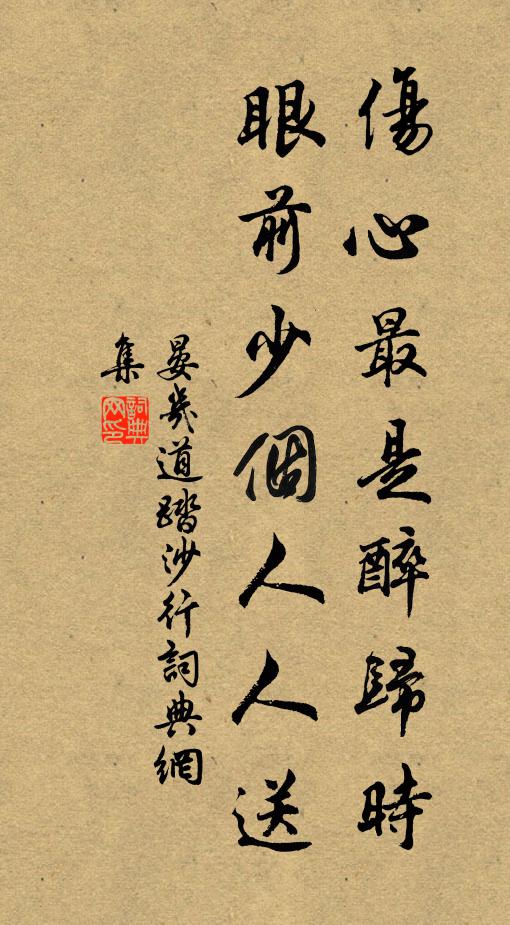 傷心最是醉歸時
眼前少個人人送
晏幾道踏沙行詞典網
集
詞典
网印